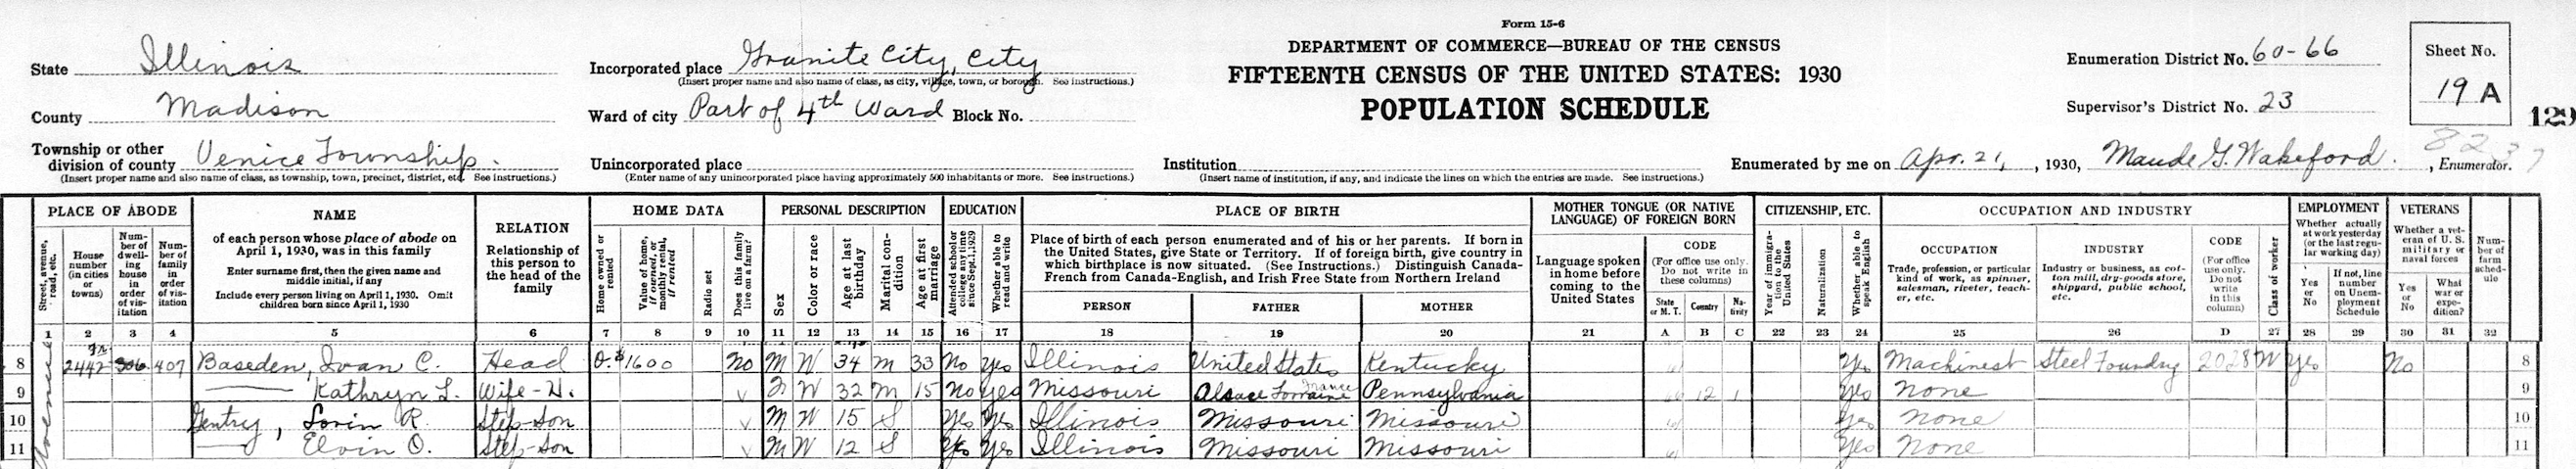 Form 15-6
DEPARTMENT OF COMMERCE—BUREAU OF THE CENSUS
FIFTEENTH CENSUS OF THE UNITED STATES: 1930
POPULATION SCHEDULE
State Illinois
County Madison
Township or other division of county Venice Township.
(Insert proper name and also name of class, as township, town, precinct, district, etc. See instructions.)
Incorporated place Granite City, City
(Insert proper name and also name of class, as city, village, town, or borough. See instructions.)
Ward of city Part of 4th Ward Block No.
Unincorporated place
(Enter name of any unincorporated place having approximately 500 inhabitants or more. See instructions.)
Institution
(Insert name of institution, if any, and indicate the lines on which the entries are made. See instructions.)
Enumeration District No. 60-66
Supervisor's District No. 23
Sheet No.
19 A
129
Enumerated by me on Apr. 21, , 1930, Maude G. Wakeford. , Enumerator.
PLACE OF ABODE
Street, avenue, road, etc.
House number (in cities or towns)
Number of dwelling house in order of visitation
Number of family in order of visitation
NAME
of each person whose place of abode on April 1, 1930, was in this family
Enter surname first, then the given name and middle initial, if any
Include every person living on April 1, 1930. Omit children born since April 1, 1930
RELATION
Relationship of this person to the head of the family
HOME DATA
Home owned or rented
Value of home, if owned, or monthly rental, if rented
Radio set
Does this family live on a farm?
PERSONAL DESCRIPTION
Sex
Color or race
Age at last birthday
Marital condition
Age at first marriage
EDUCATION
Attended school or college any time since Sept. 1, 1929
Whether able to read and write
PLACE OF BIRTH
Place of birth of each person enumerated and of his or her parents. If born in the United States, give State or Territory. If of foreign birth, give country in which birthplace is now situated. (See Instructions.) Distinguish Canada-French from Canada-English, and Irish Free State from Northern Ireland
PERSON FATHER MOTHER
MOTHER TONGUE (OR NATIVE LANGUAGE) OF FOREIGN BORN
Language spoken in home before coming to the United States
CODE
(For office use only. Do not write in these columns)
State or M. T. Country Nativity
CITIZENSHIP, ETC.
Year of immigration to the United States
Naturalization
Whether able to speak English
OCCUPATION AND INDUSTRY
OCCUPATION
Trade, profession, or particular kind of work, as spinner, salesman, riveter, teacher, etc.
INDUSTRY
Industry or business, as cotton mill, dry-goods store, shipyard, public school, etc.
CODE
(For office use only. Do not write in this column)
Class of worker
EMPLOYMENT
Whether actually at work yesterday (or the last regular working day)
Yes or No
If not, line number on Unemployment Schedule
VETERANS
Whether a veteran of U. S. military or naval forces
Yes or No
What war or expedition?
Number of farm schedule
1 2 3 4 5 6 7 8 9 10 11 12 13 14 15 16 17 18 19 20 21 A B C 22 23 24 25 26 D 27 28 29 30 31 32
8 2442 306 407 Baseden, Ivan C. Head O. $1600 No M W 34 M 33 No Yes Illinois United States Kentucky Yes Machinest Steel Foundry 2028 W Yes No 8
9 Kathryn L. Wife-H. V F W 32 M 15 No Yes Missouri Alsace Lorraine France Pennsylvania 12 1 Yes None 9
10 Gentry, Lorin R. Step-Son V M W 15 S Yes Yes Illinois Missouri Missouri Yes None 10
11 Elvin O. Step-Son V M W 12 S Yes Yes Illinois Missouri Missouri Yes None 11